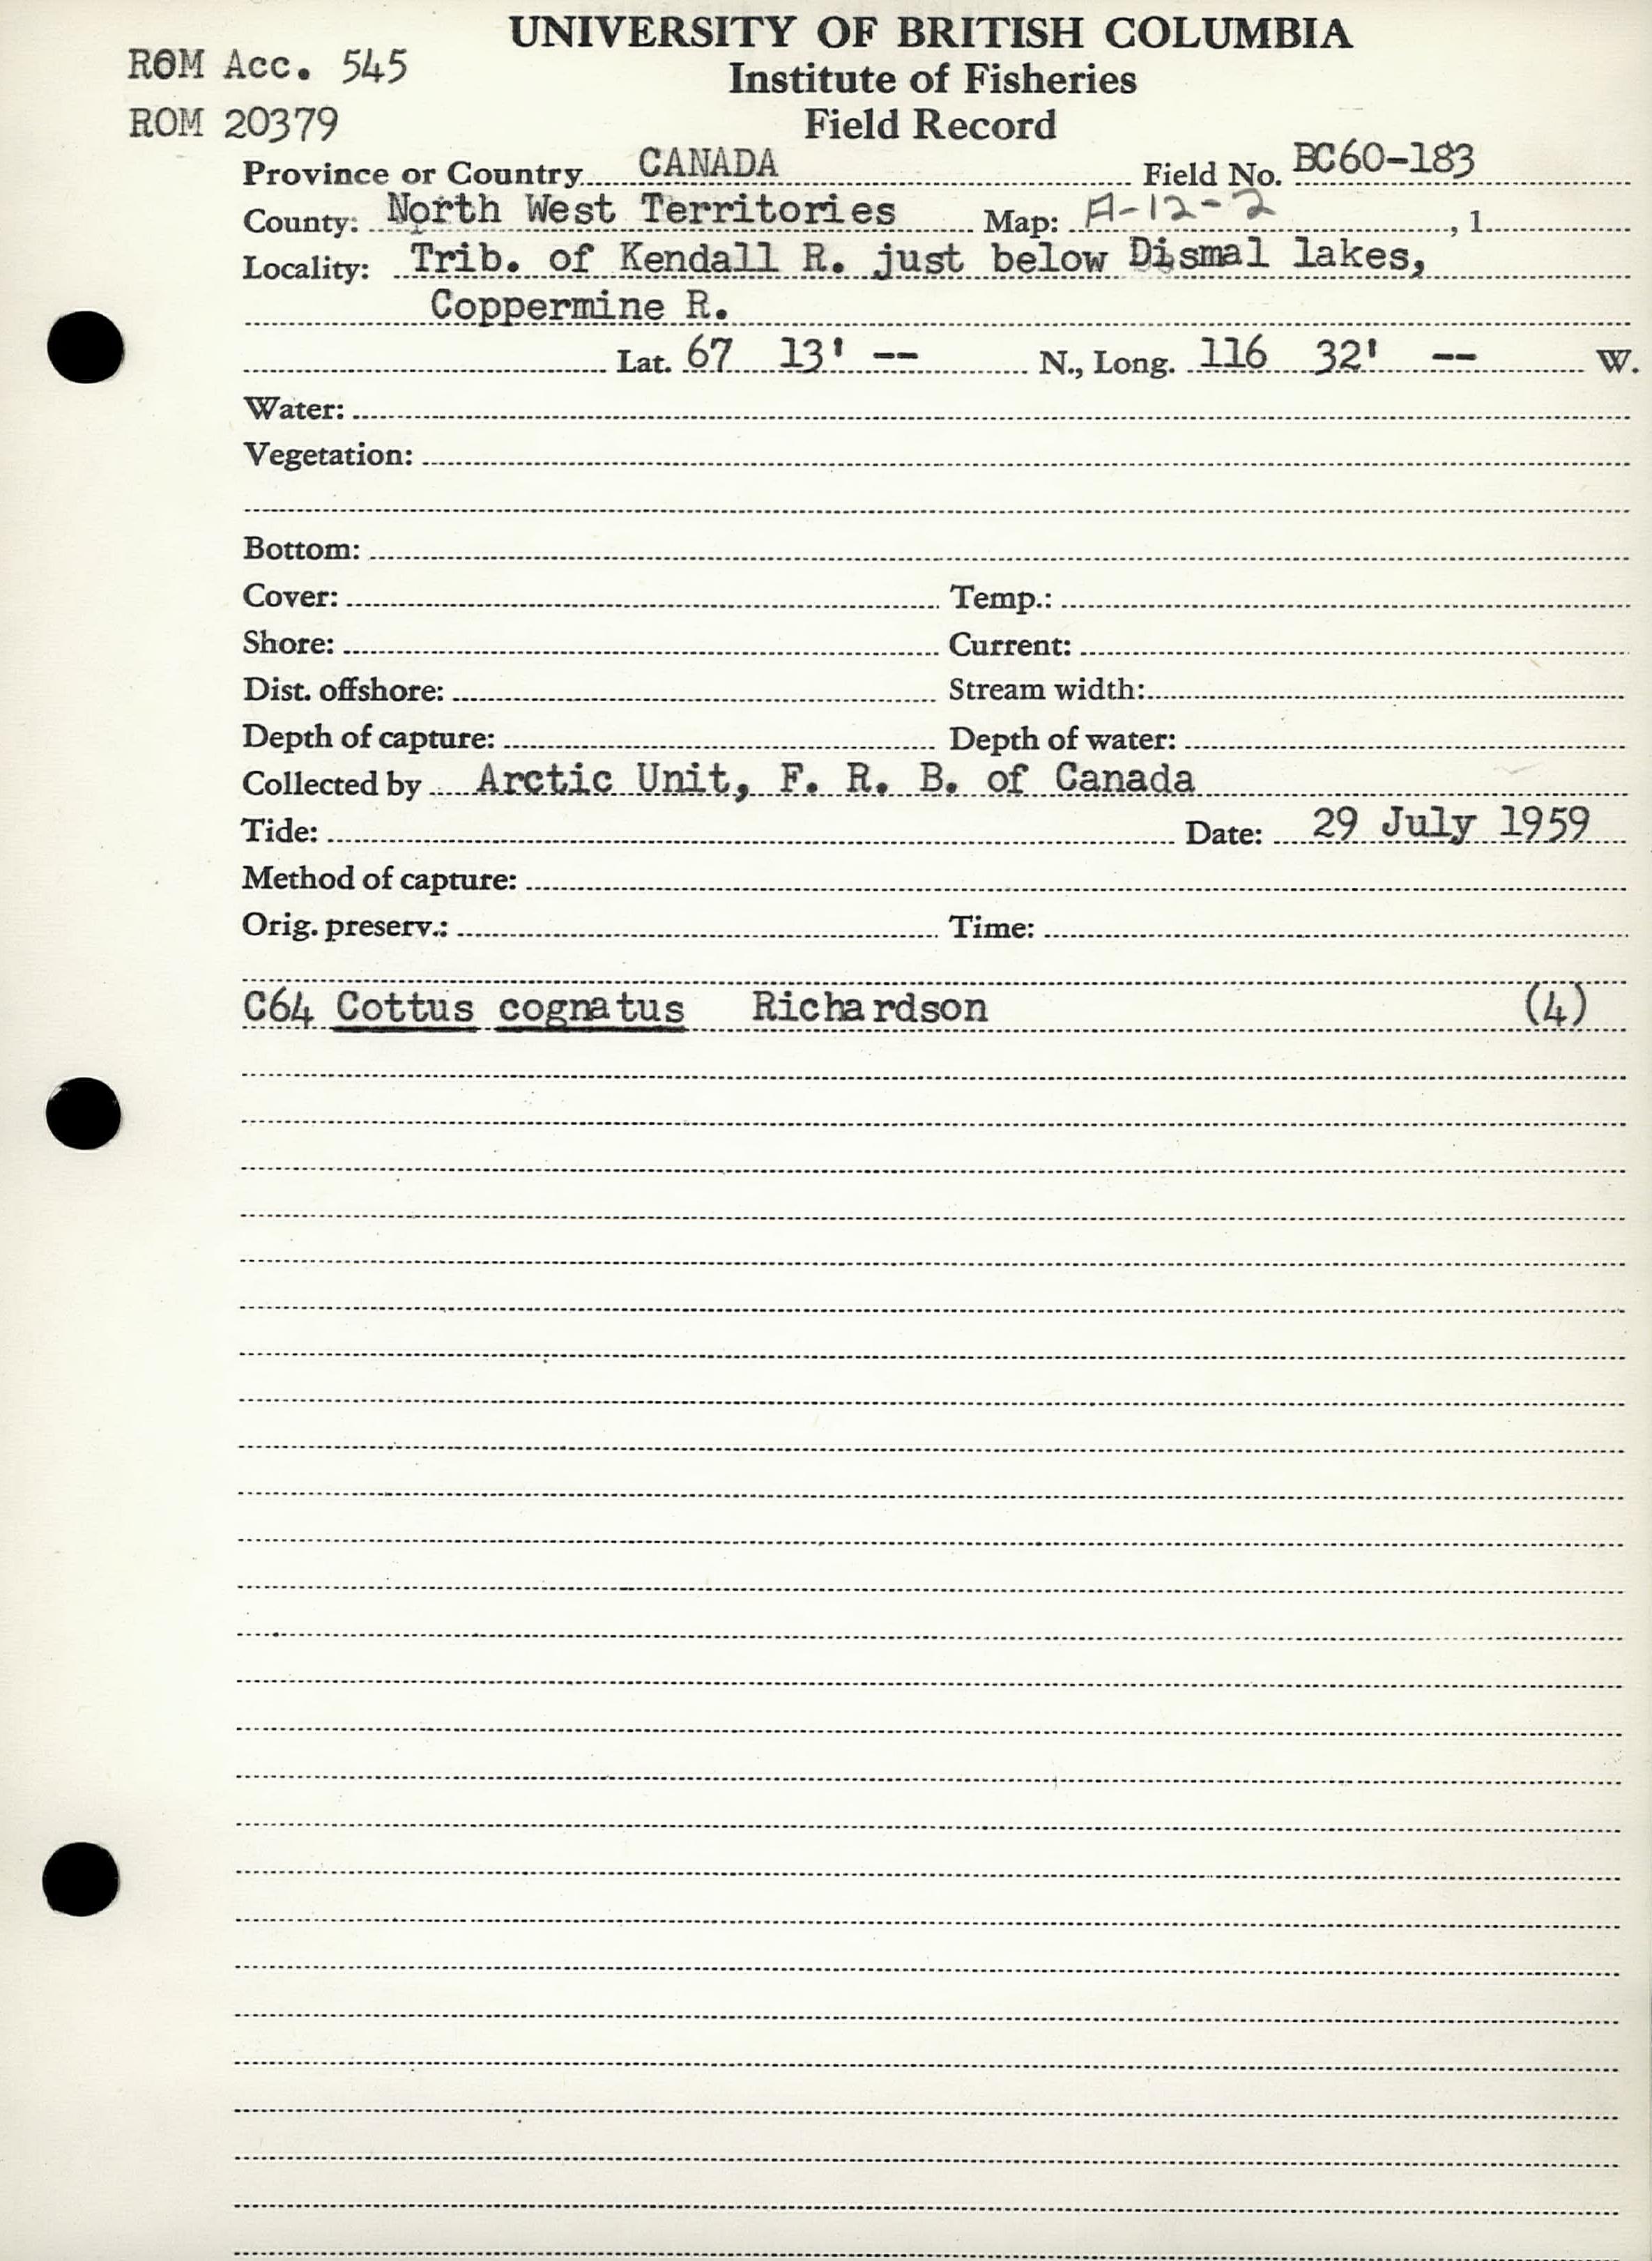 UNIVERSITY OF BRITISH COLUMBIA
ROM Acc. 545
Institute of Fisheries
ROM 20379
Field Record
Province or Country CANADA Field No. BC60-183
County: North West Territories Map: A-12-2 , 1.
Locality: Trib. of Kendall R. just below Dismal lakes,
Coppermine R.
Lat. 67 13' -- N., Long. 116 32' -- W.
Water:
Vegetation:
Bottom:
Cover: Temp.:
Shore: Current:
Dist. offshore: Stream width:
Depth of capture: Depth of water:
Collected by Arctic Unit, F. R. B. of Canada
Tide: Date: 29 July 1959
Method of capture:
Orig. preserv.: Time:
C64 Cottus cognatus Richardson (4)